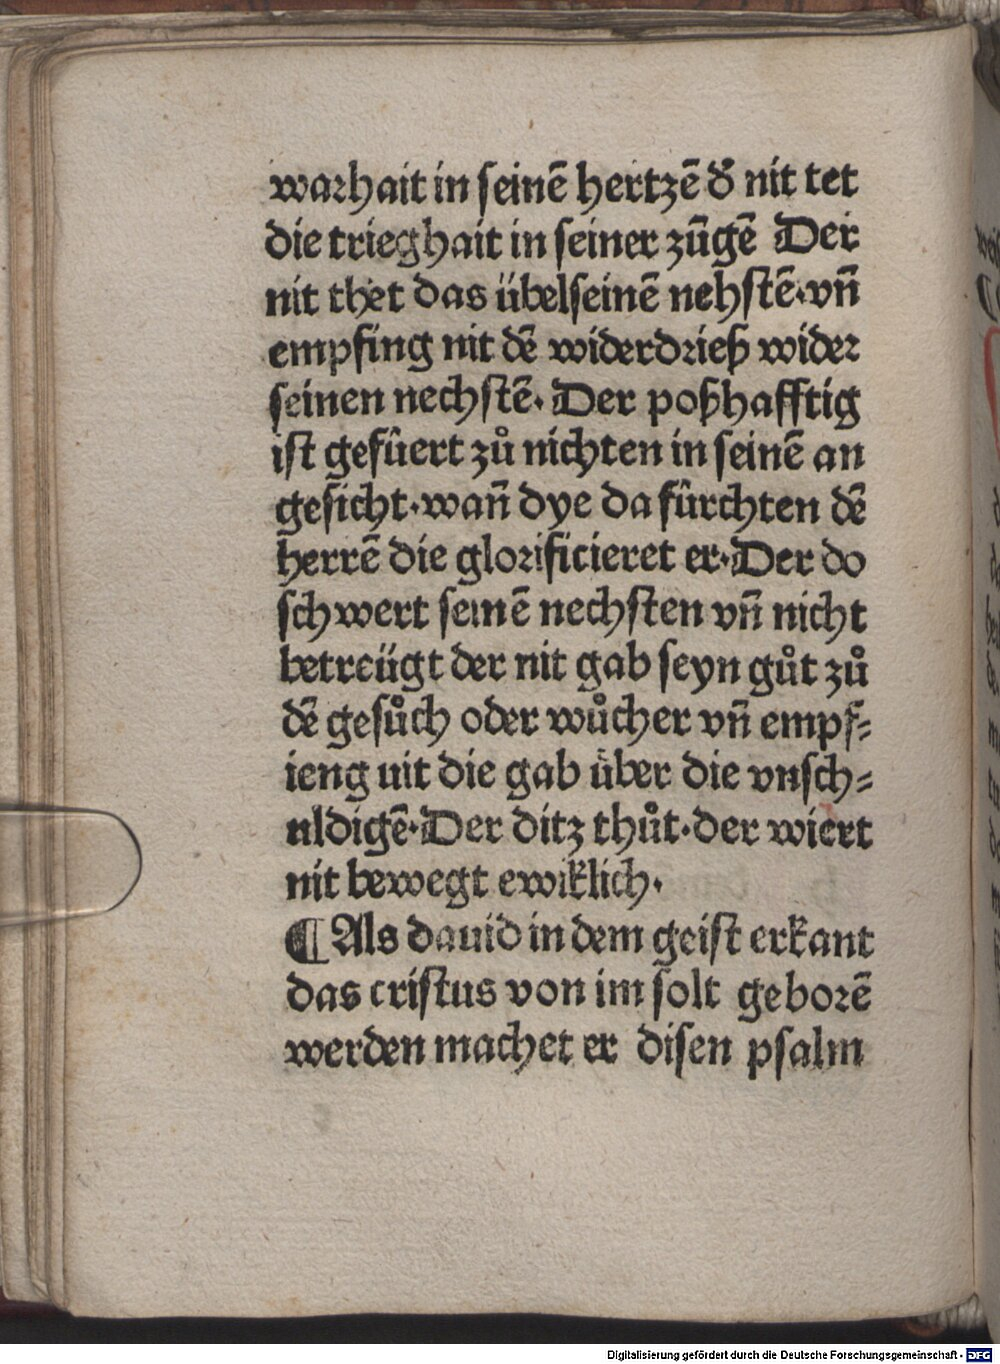 warhait in seinē hertzē d̄ nit tet
die trieghait in seiner zūgē Der
nit thet das übelseinē nehstē·vn̄
empfing nit dē widerdrieß wider
seinen nechstē· Der poßhafftig
ist gefûert zů nichten in seinē an
gesicht·wan̄ dye da fûrchten dē
herrē die glorificieret er·Der do
schwert seinē nechsten vn̄ nicht
betreügt der nit gab seyn gůt zů
dē gesůch oder wůcher vn̄ empf⸗
ieng uit die gab über die vnsch⸗
uldigē·Der ditz thůt·der wiert
nit bewegt ewiklich·
¶ Als dauid in dem geist erkant
das cristus von im solt geborē
werden machet er disen psalm
Digitalisierung gefördert durch die Deutsche Forschungsgemeinschaft - DFG